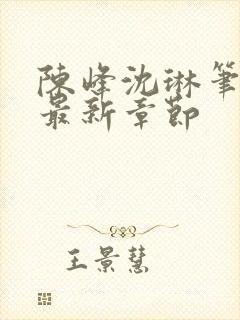 陳峰沈琳筆
最新章節
王景慧